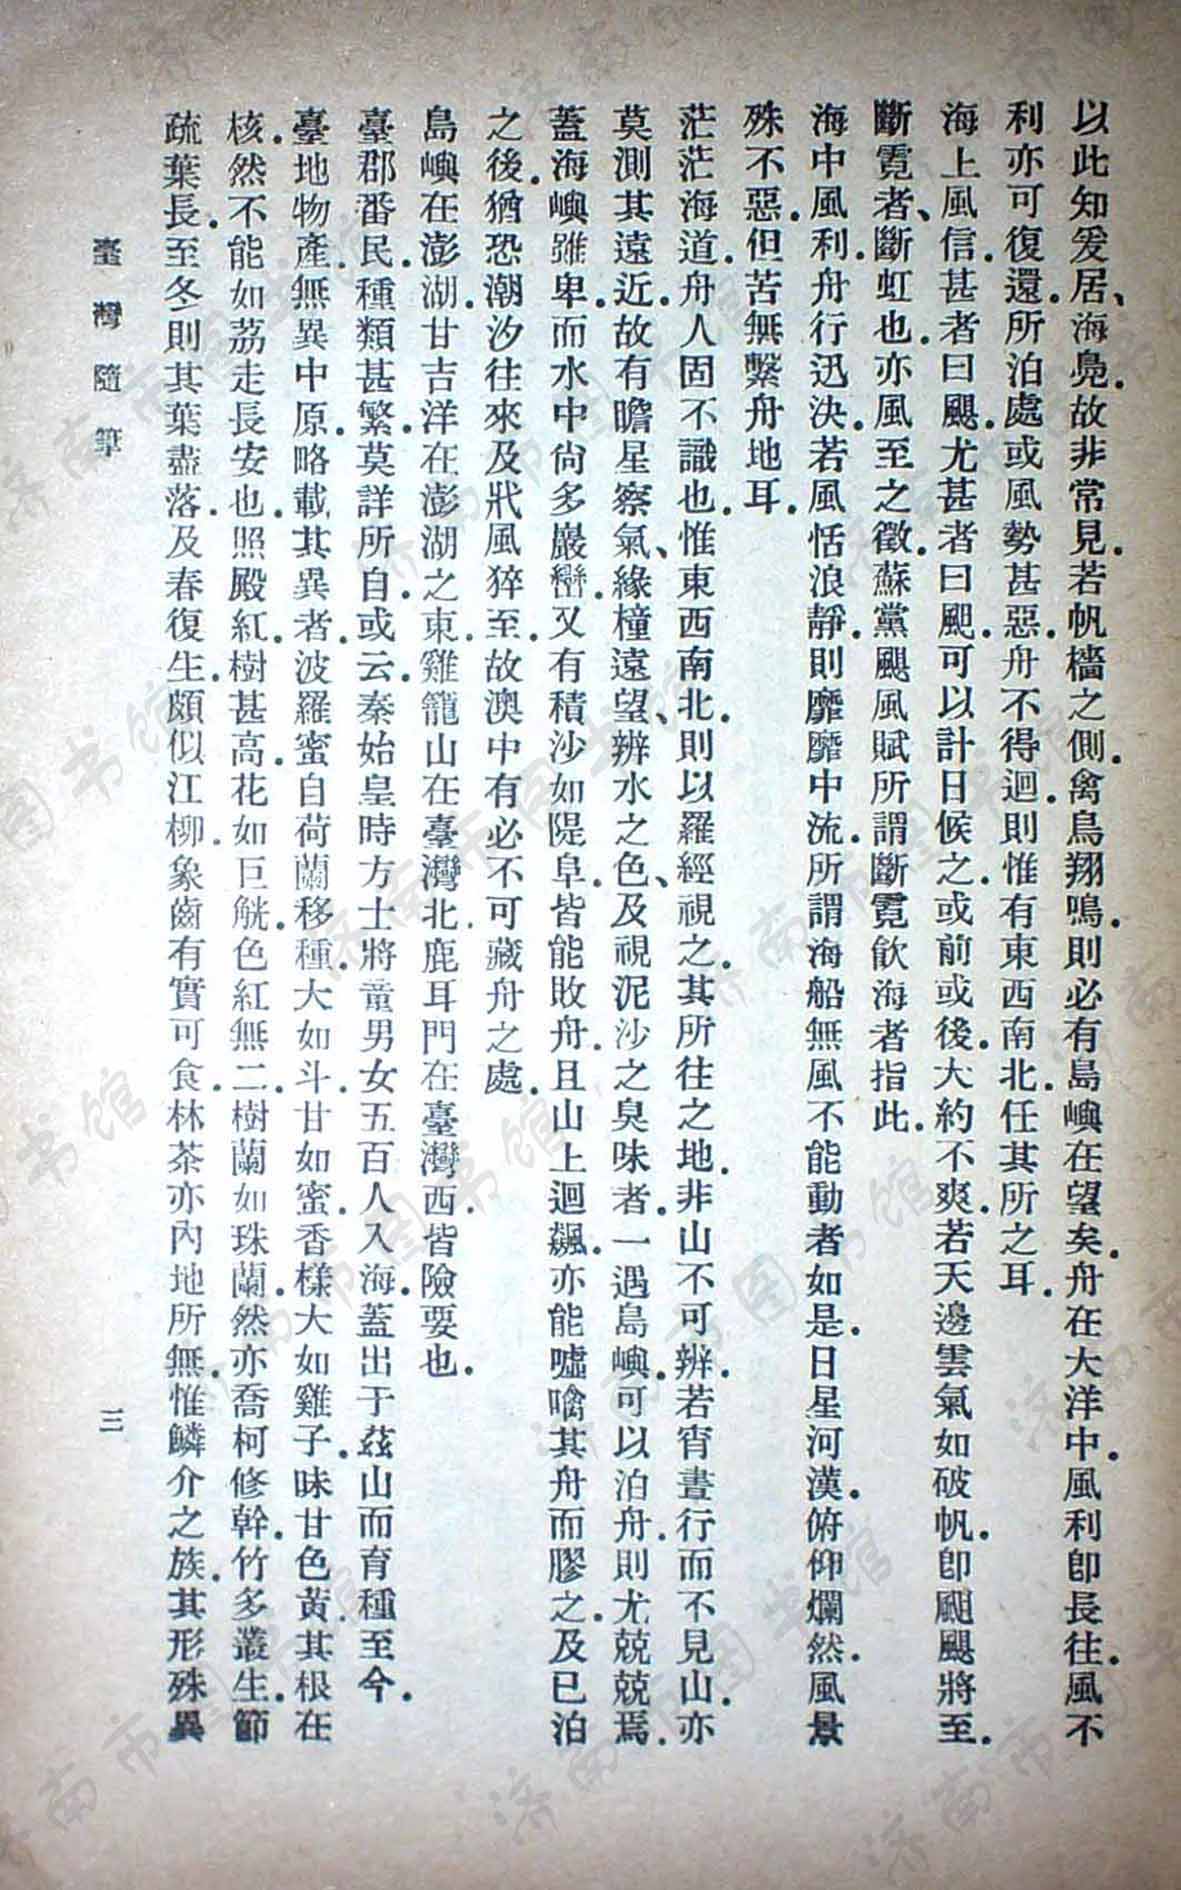 以此知爰居、海鳧。故非常見。若帆檣之側。禽鳥翔鳴。則必有島嶼在望矣。舟在大洋中。風利卽長往。風不
利亦可復還。所泊處或風勢甚惡。舟不得迴。則惟有東西南北。任其所之耳。
海上風信。甚者曰颶。尤甚者曰颮。可以計日候之。或前或後。大約不爽。若天邊雲氣如破帆。卽颮颶將至。
斷霓者、斷虹也。亦風至之徵。蘇黨颶風賦所謂斷霓飲海者指此。
海中風利。舟行迅決。若風恬浪靜。則靡靡中流。所謂海船無風不能動者如是。日星河漢。俯仰爛然。風景
殊不惡。但苦無繫舟地耳。
茫茫海道。舟人固不識也。惟東西南北。則以羅經視之。其所往之地。非山不可辨。若宵晝行而不見山。亦
莫測其遠近。故有瞻星察氣、緣橦遠望、辨水之色、及視泥沙之臭味者。一遇島嶼。可以泊舟。則尤兢兢焉。
蓋海嶼雖卑。而水中尙多巖巒。又有積沙如隄阜。皆能敗舟。且山上迴飆。亦能噓噏其舟而膠之。及已泊
之後。猶恐潮汐往來。及戕風猝至。故澳中有必不可藏舟之處。
島嶼在澎湖。甘吉洋在澎湖之東。雞籠山在臺灣北。鹿耳門在臺灣西。皆險要也。
臺郡番民。種類甚繁。莫詳所自。或云。秦始皇時方士將童男女五百人入海。蓋出于茲山而育種至今。
臺地物產。無異中原。略載其異者。波羅蜜自荷蘭移種。大如斗。甘如蜜。香樣大如雞子。味甘色黃。其根在
核。然不能如荔走長安也。照殿紅。樹甚高。花如巨觥。色紅無二。樹蘭如珠蘭。然亦喬柯修幹。竹多叢生。節
疏葉長。至冬則其葉盡落。及春復生。頗似江柳。象齒有實可食。林茶亦內地所無。惟鱗介之族。其形殊異
臺灣隨筆
三